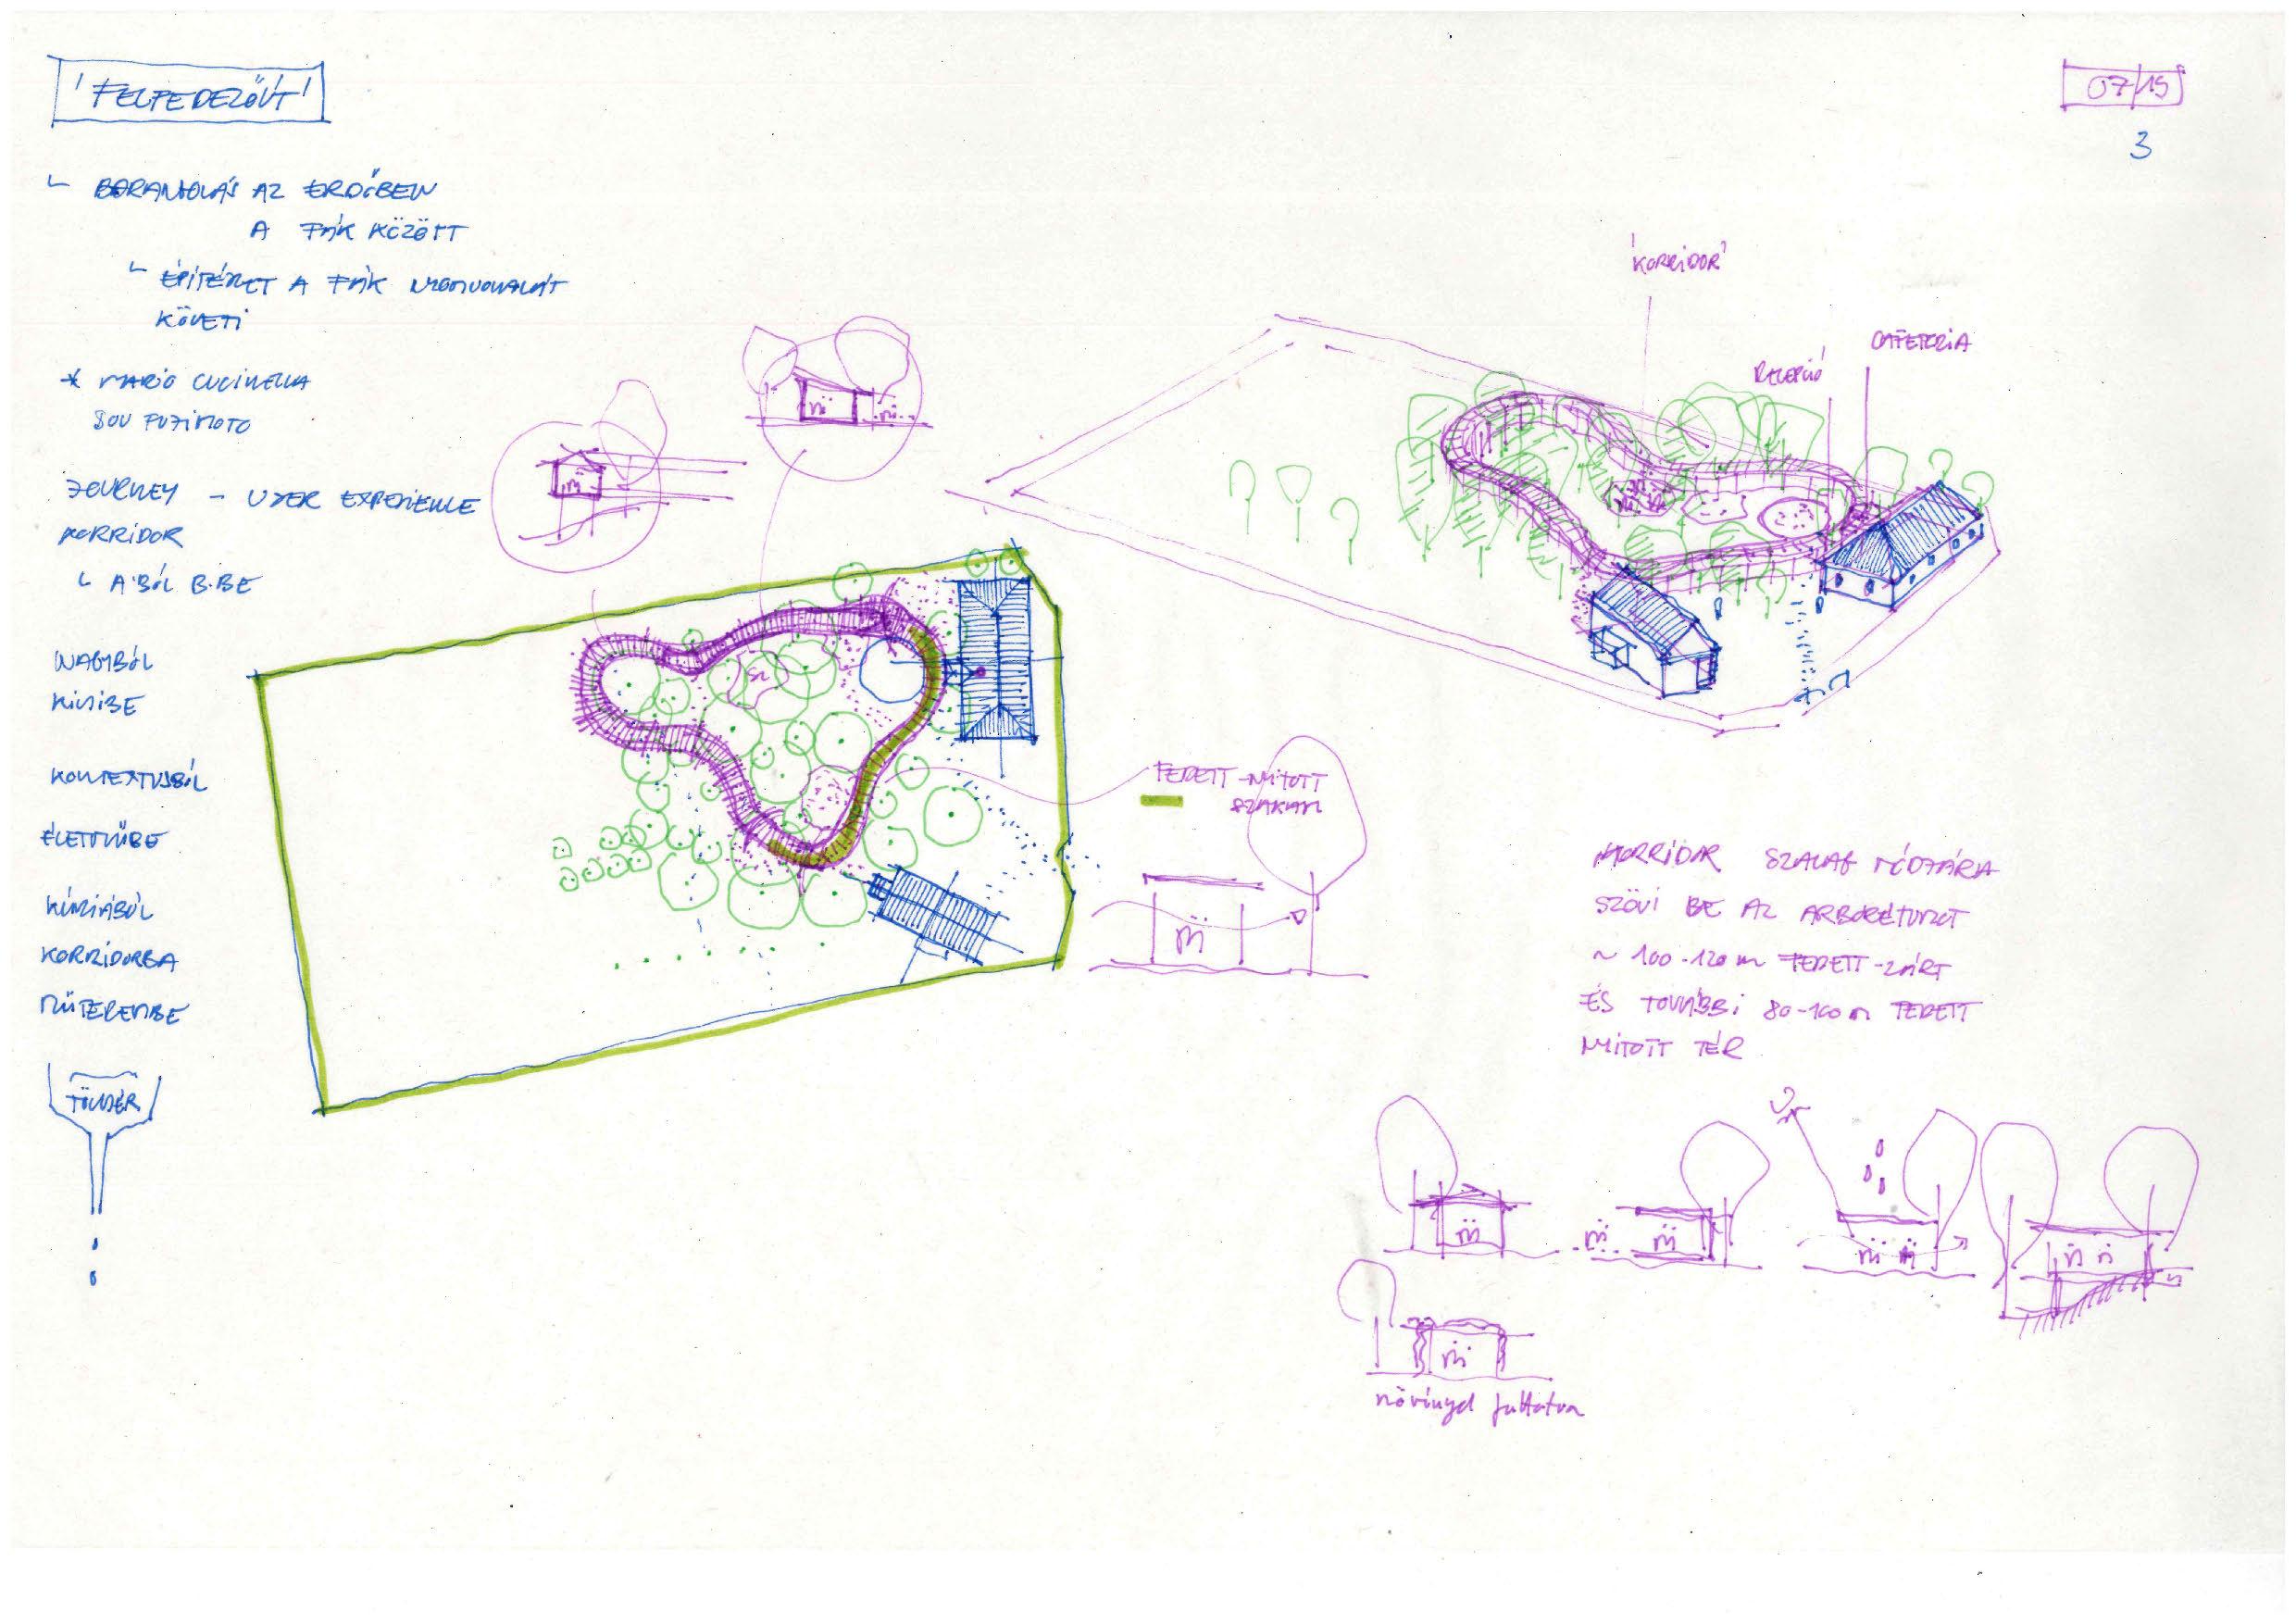 'FELFEDEZŐÚT'
07/15
3
BARANGOLÁS AZ ERDŐBEN
A FÁK KÖZÖTT
ÉPÍTÉSZET A FÁK NYOMVONALÁT
KÖVETI
* MARIO CUCINELLA
SOU FUJIMOTO
JOURNEY - USER EXPERIENCE
KORRIDOR
A'BÓL B-BE
NAGYBÓL
KICSIBE
KONTEXTUSBÓL
ÉLETMŰBE
KÚRIÁBÓL
KORRIDORBA
MŰTEREMBE
TÖLCSÉR
'KORRIDOR'
RECEPCIÓ
CAFETERIA
FEDETT-NYITOTT
SZAKASZ
KORRIDOR SZALAG MÓDJÁRA
SZÖVI BE AZ ARBORÉTUMOT
~ 100-120 m FEDETT-ZÁRT
ÉS TOVÁBBI 80-100 m FEDETT
NYITOTT TÉR
növénnyel futtatva